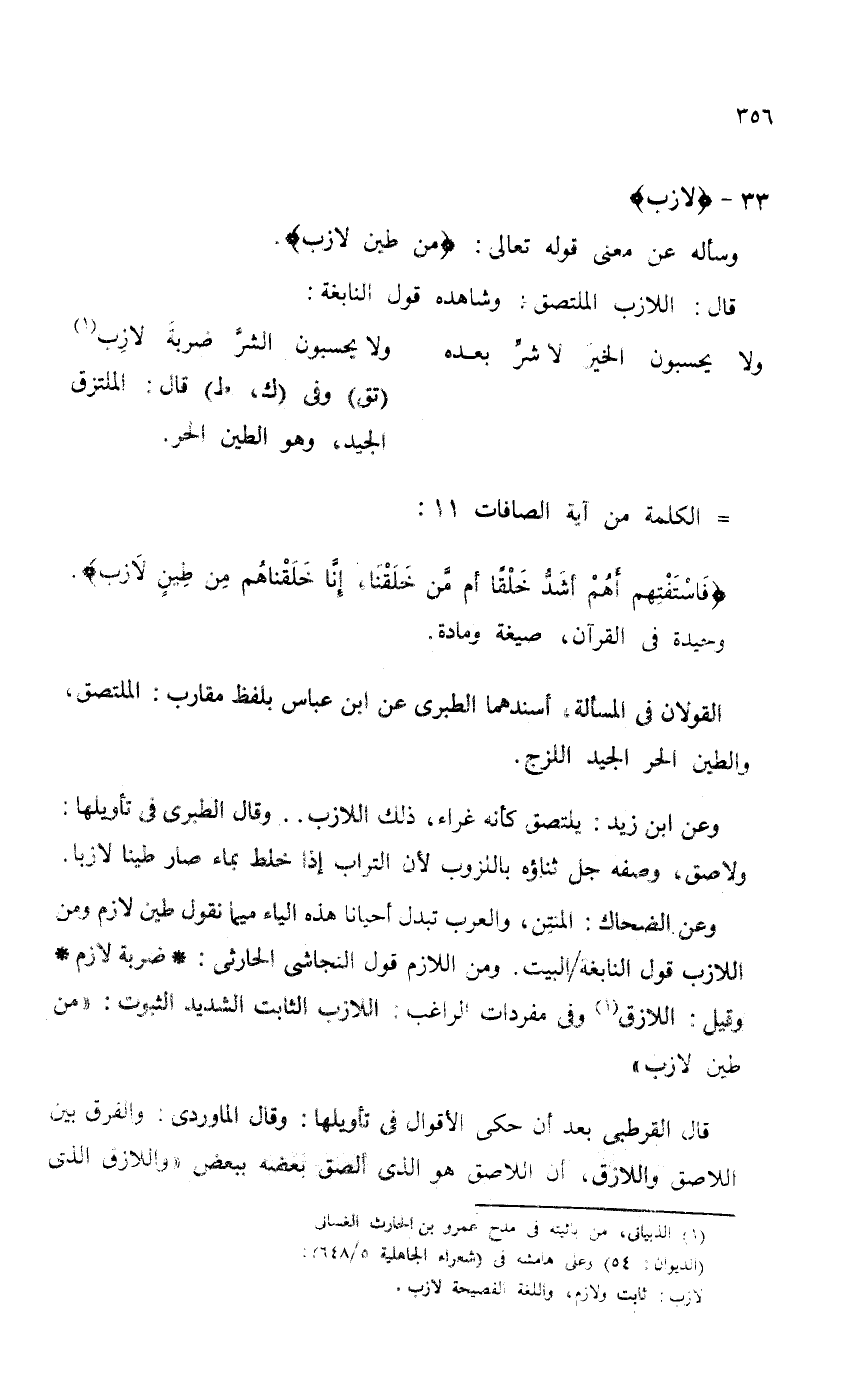 ٣٥٦
٣٣ - ﴿لازب﴾
وسأله عن معنى قوله تعالى : ﴿من طين لازب﴾ .
قال : اللازب الملتصق : وشاهده قول النابغة :
ولا يحسبون الخيرَ لا شرَّ بعـده     ولا يحسبون الشرَّ ضربةَ لازِب(١)
(تق) وفى (ك، ط) قال : الملتزق
الجيد، وهو الطين الحر.
= الكلمة من آية الصافات ١١ :
﴿فَاسْتَفْتِهم أَهُمْ أشَدُّ خَلْقًا أم مَّن خَلَقْنَا، إنَّا خَلَقْناهُم مِن طِينٍ لَازب﴾ .
وحيدة فى القرآن، صيغة ومادة.
القولان فى المسألة، أسندهما الطبرى عن ابن عباس بلفظ مقارب : الملتصق،
والطين الحر الجيد اللزج.
وعن ابن زيد : يلتصق كأنه غراء، ذلك اللازب . . وقال الطبرى فى تأويلها :
ولاصق، وصفه جل ثناؤه باللزوب لأن التراب إذا خلط بماء صار طينا لازبا.
وعن الضحاك : المنتِن، والعرب تبدل أحيانا هذه الباء ميما نقول طين لازم ومن
اللازب قول النابغة/البيت. ومن اللازم قول النجاشى الحارثى : * ضربة لازم *
وقيل : اللازق(١) وفى مفردات الراغب : اللازب الثابت الشديد الثبوت : «من
طين لازب»
قال القرطبى بعد أن حكى الأقوال فى تأويلها : وقال الماوردى : والفرق بين
اللاصق واللازق، أن اللاصق هو الذى ألصق بعضه ببعض «واللازق الذى
(١) الذبيانى، من بائيته فى مدح عمرو بن الحارث الغسانى
(الديوان : ٥٤) وعلى هامشه فى (شعراء الجاهلية ٦٤٨/٥) :
لازب : ثابت ولازم، واللغة الفصيحة لازب .